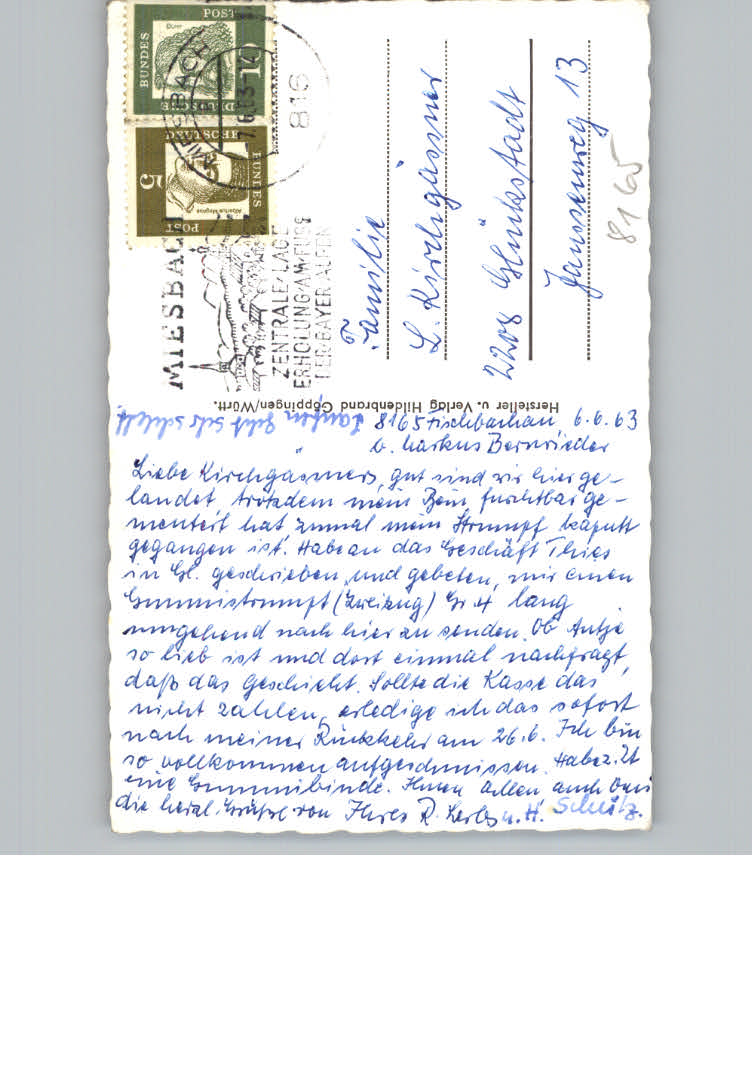 8165 Fischbachau, 6.6.63
b. Markus Bernrieder
Liebe Kirchgässners, gut sind wir hier ge-
landet trotzdem mein Bein furchtbar ge-
mentert hat zumal mein Strumpf kaputt
gegangen ist. Habe an das Geschäft Thies
in Gl. geschrieben und gebeten, mir einen
Gummistrumpf (Zweizug) Gr. 4 lang
umgehend nach hier zu senden. Ob Antje
so lieb ist und dort einmal nachfragt,
daß das Geschieht. Sollte die Kasse das
nicht zahlen, erledige ich das sofort
nach meiner Rückkehr am 26.6. Ich bin
so vollkommen aufgeschmissen. Habe z. Zt
eine Gummibinde. Ihnen Allen auch
die herzl. Grüße von Ihres R. u. H. Schulz.
Laufen geht sehr schlecht
Familie
L. Kirchgässner
2208 Glückstadt
Janssenweg 13
8165
Hersteller u. Verlag Hildenbrand Göppingen/Württ.
MIESBACH
ZENTRALE LAGE
ERHOLUNG AM FUSSE
DER BAYER. ALPEN
MIESBACH
7.6.63-14
816
DEUTSCHE
BUNDES
POST
10
Dürer
DEUTSCHE
BUNDES
POST
5
Albertus Magnus